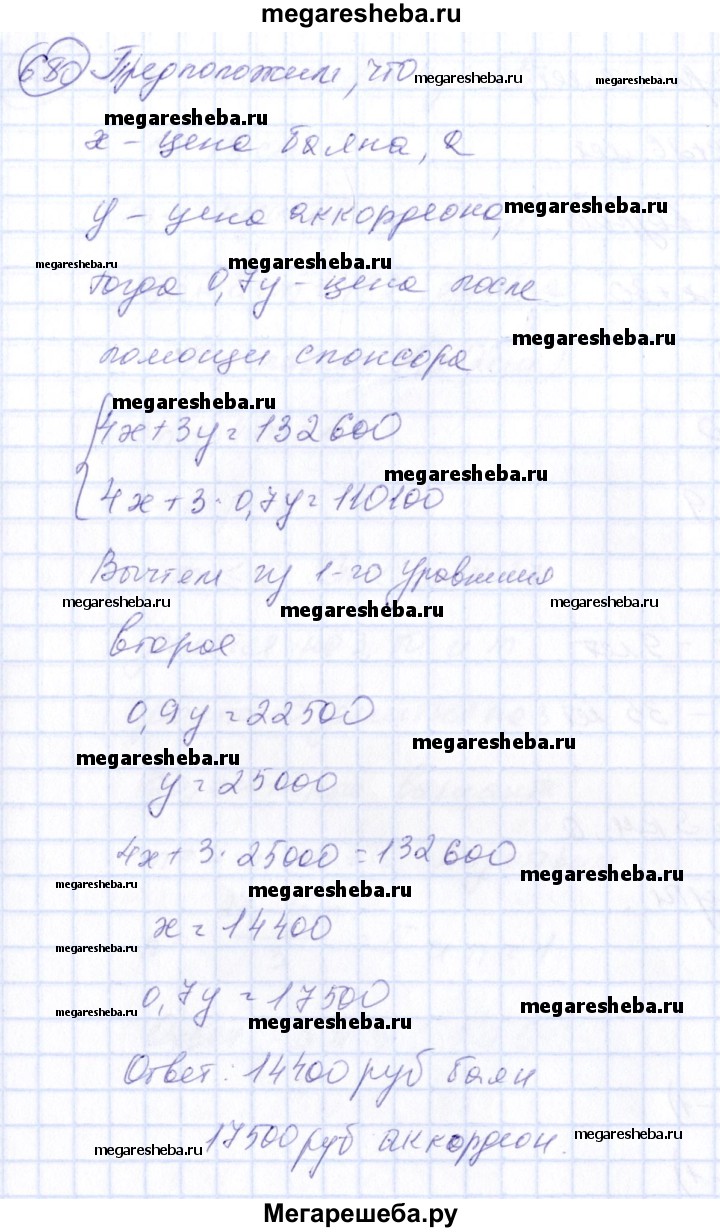 megaresheba.ru
680 Предположим, что megaresheba.ru megaresheba.ru
megaresheba.ru
x – цена баяна, а
y – цена аккордеона, megaresheba.ru
megaresheba.ru megaresheba.ru
тогда 0,7y – цена после
megaresheba.ru
помощи спонсора
megaresheba.ru
4x + 3y = 132600
megaresheba.ru
4x + 3 · 0,7y = 110100
Вычтем из 1-го уравнения
megaresheba.ru megaresheba.ru megaresheba.ru
второе
0,9y = 22500
megaresheba.ru megaresheba.ru
y = 25000
4x + 3 · 25000 = 132600
megaresheba.ru megaresheba.ru megaresheba.ru
x = 14400
megaresheba.ru
0,7y = 17500
megaresheba.ru megaresheba.ru
Ответ: 14400 руб баян
megaresheba.ru 17500 руб аккордеон. megaresheba.ru
Мегарешеба.ру